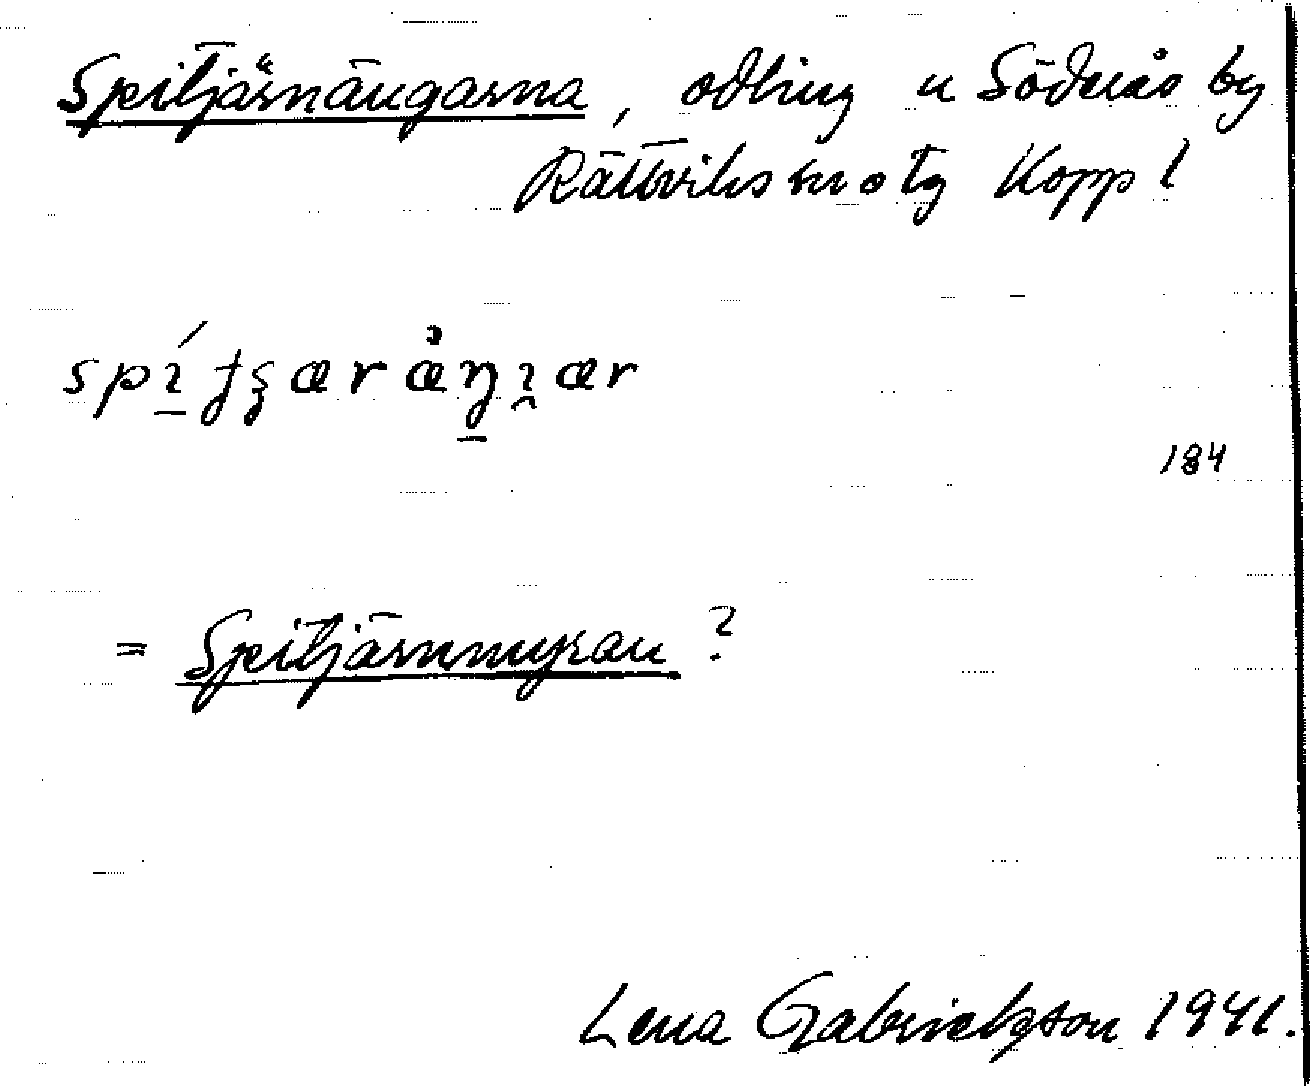 Spitjärnängarna, odling u Söderås by
Rättviks sn o tg Kopp l
= Spitjärnmyran ?
184
Lena Gabrielsson 1941.